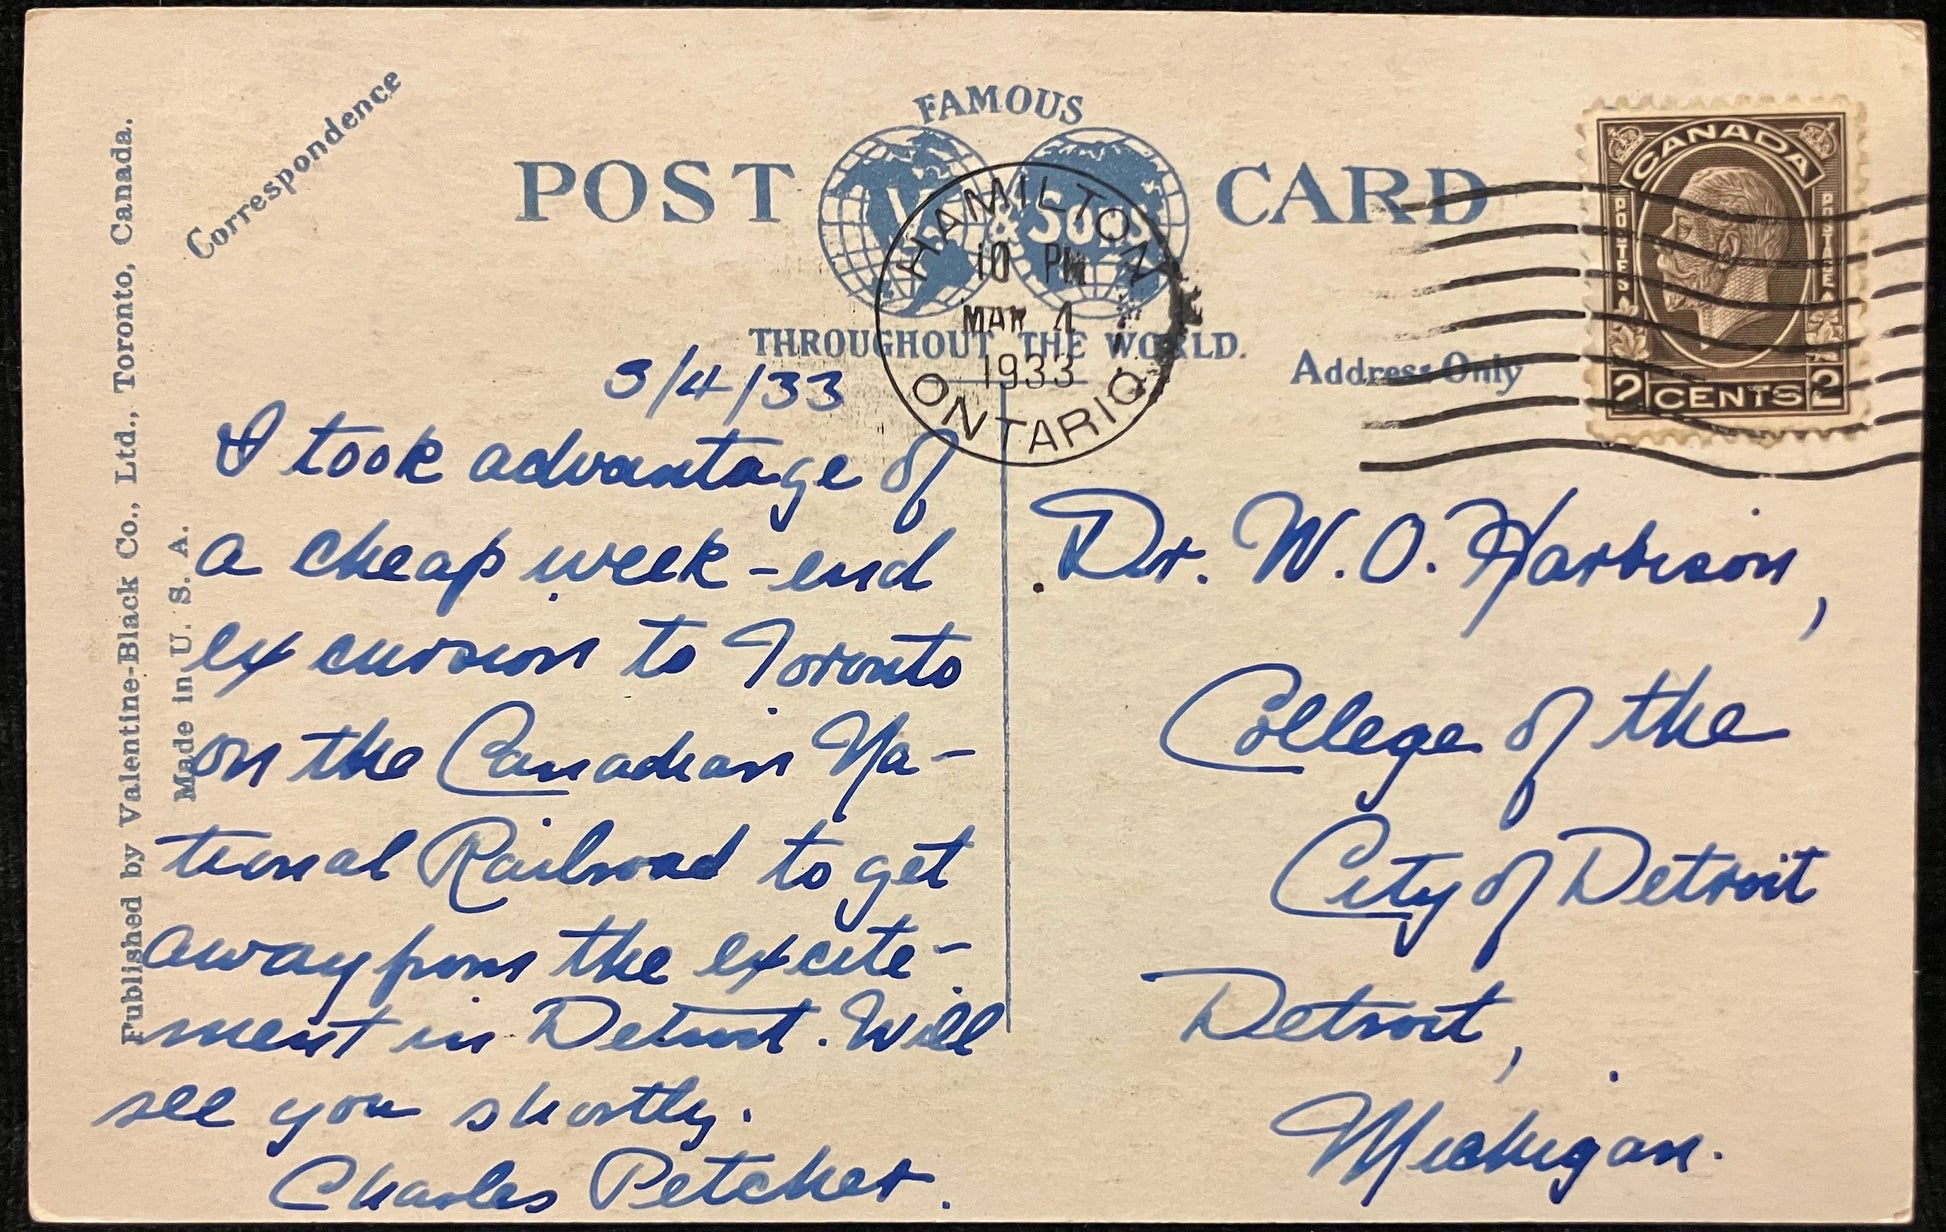 Correspondence
FAMOUS
POST CARD
V. & Sons
THROUGHOUT THE WORLD.
Address Only
HAMILTON
10 PM
MAR 4
1933
ONTARIO
CANADA
POSTES POSTAGE
2 CENTS 2
Published by Valentine-Black Co., Ltd., Toronto, Canada.
Made in U. S. A.
3/4/33
I took advantage of
a cheap week-end
excursion to Toronto
on the Canadian Na-
tional Railroad to get
away from the excite-
ment in Detroit. Will
see you shortly.
Charles Petcher.
Dr. W. O. Harbison,
College of the
City of Detroit
Detroit,
Michigan.